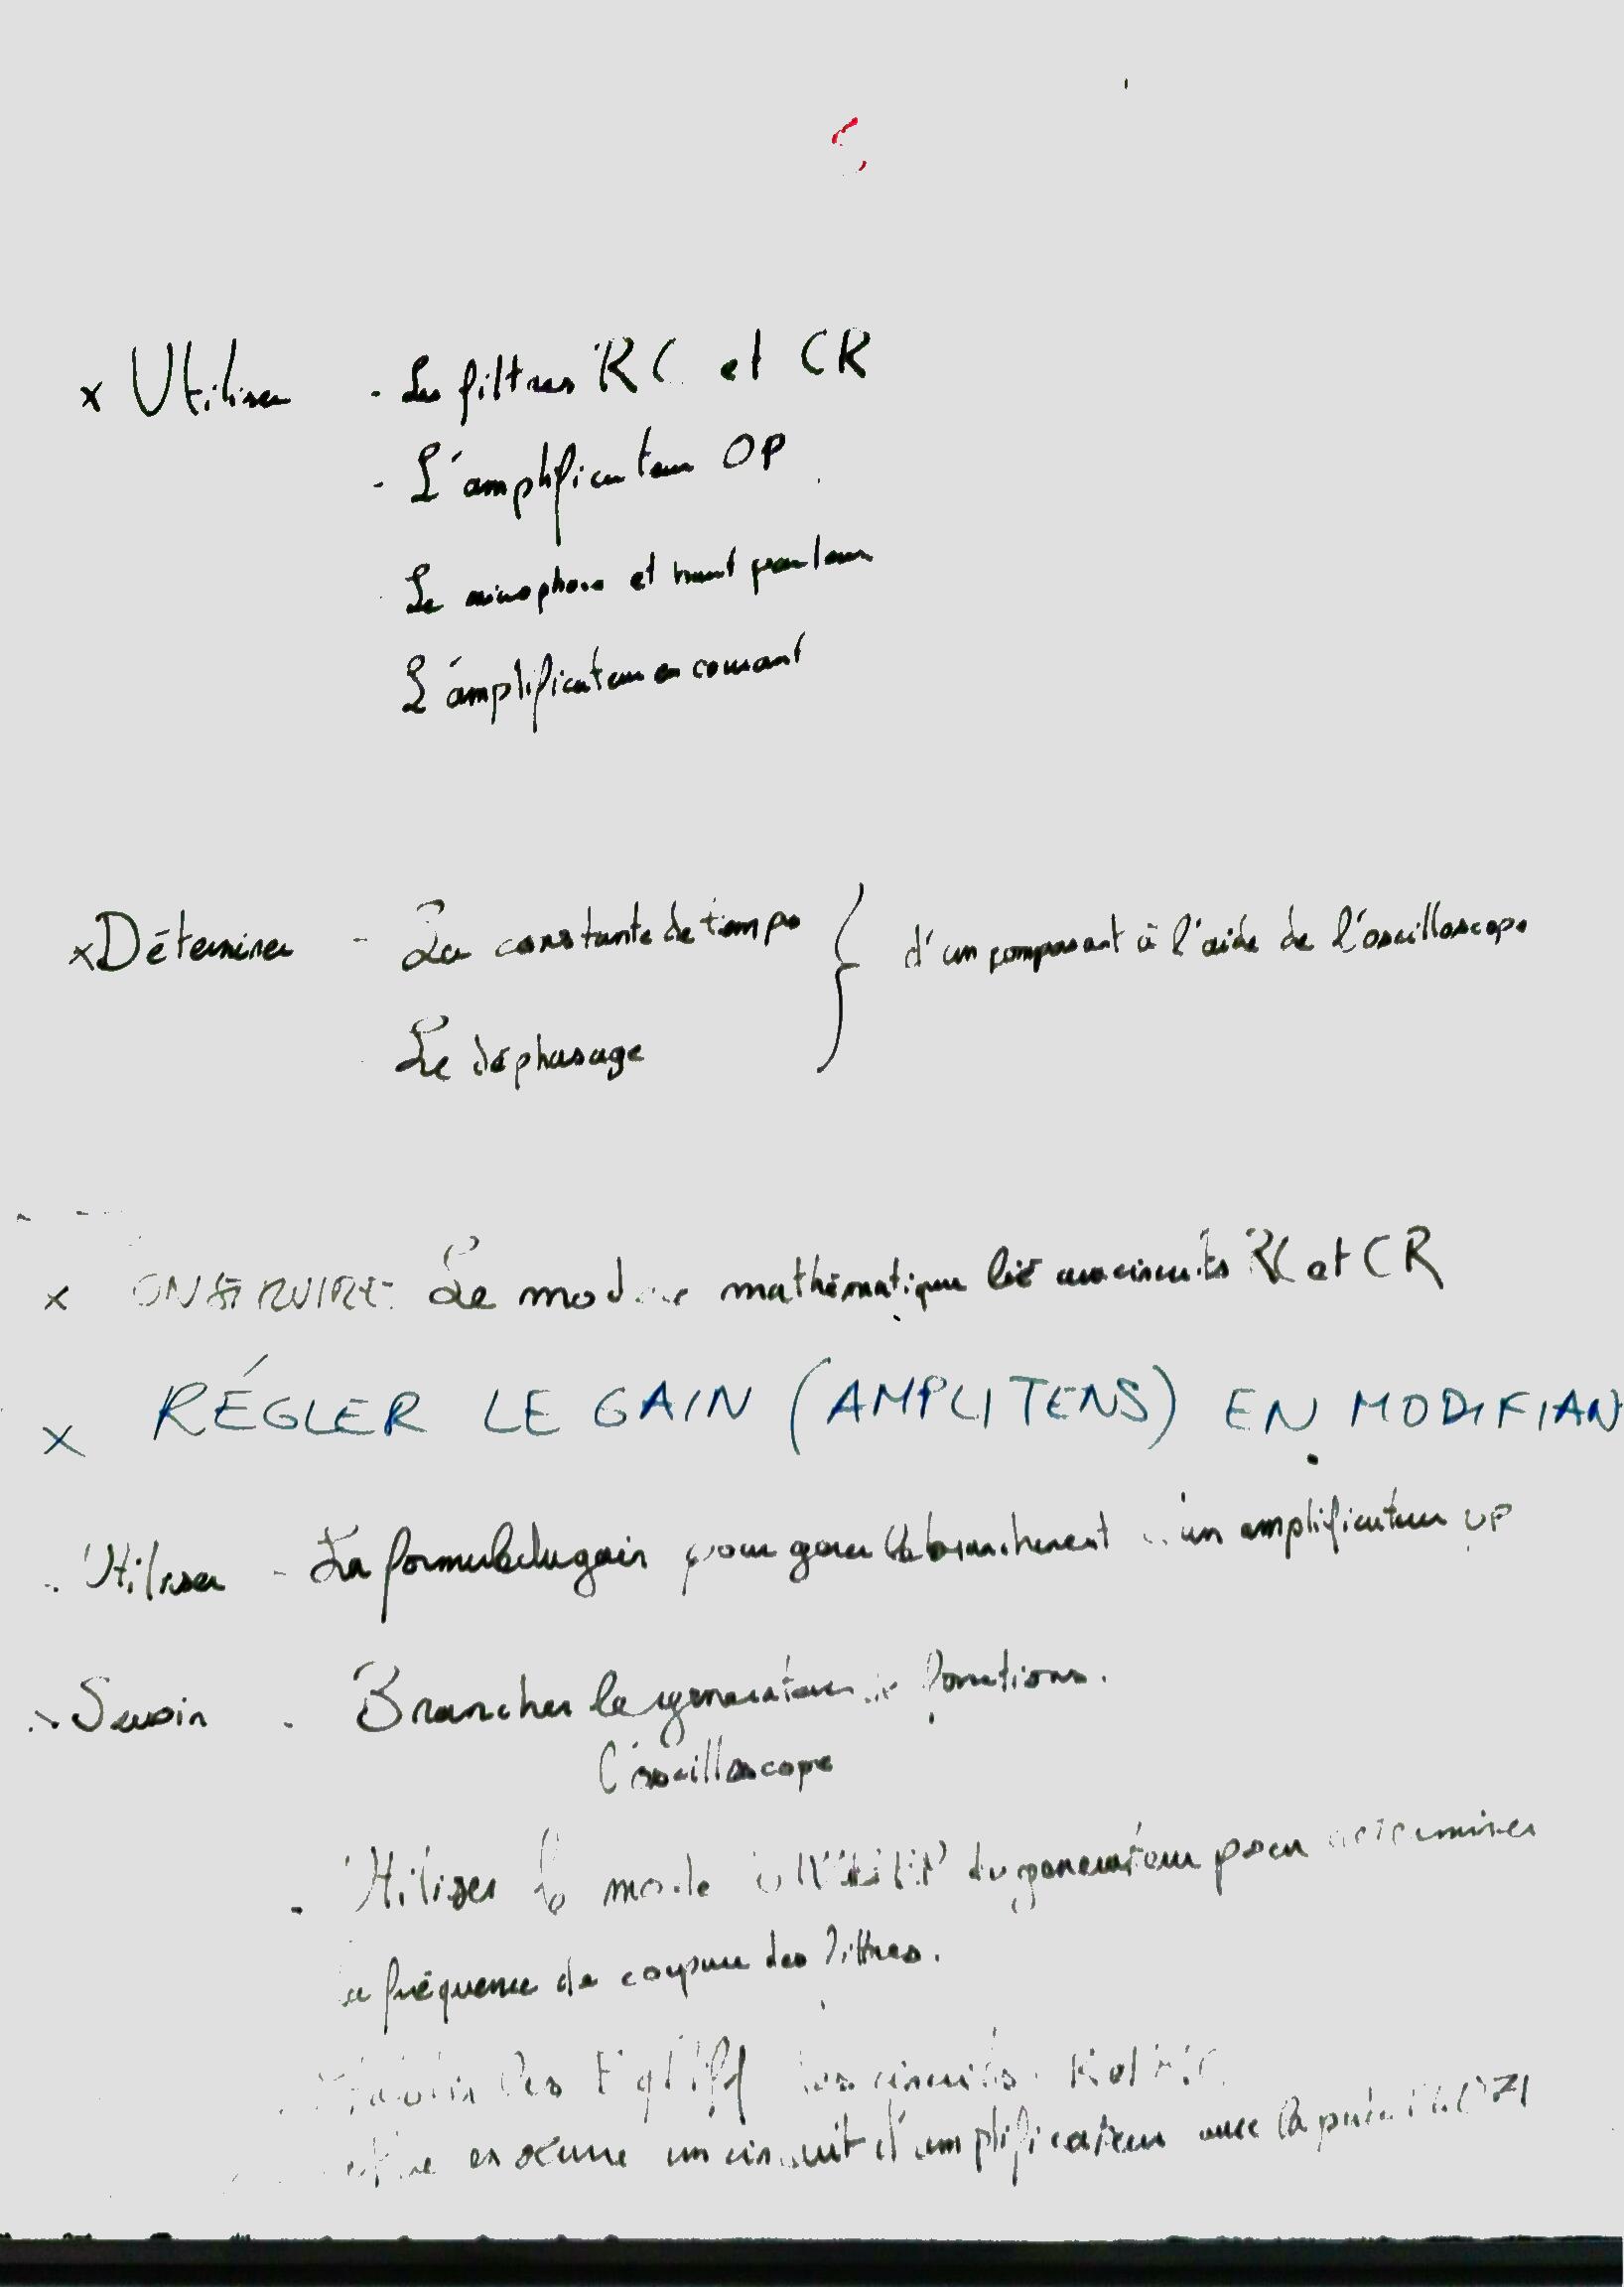 x Utiliser - Les filtres RC et CR
- L'amplificateur OP
Le microphone et haut parleur
L'amplificateur en courant
x Déterminer - La constante de temps } d'un composant à l'aide de l'oscilloscope
Le déphasage
x ONSTRUIRE: Le mod mathématique lié aux circuits RC et CR
x RÉGLER LE GAIN (AMPLI TENS) EN MODIFIAN
Utiliser - La formule du gain pour gérer le branchement un amplificateur OP
Savoir - Brancher le générateur de fonctions.
l'oscilloscope
- Utiliser le mode du générateur pour déterminer
la fréquence de coupure des filtres.
les circuits
en œuvre un circuit d'amplificateur avec la